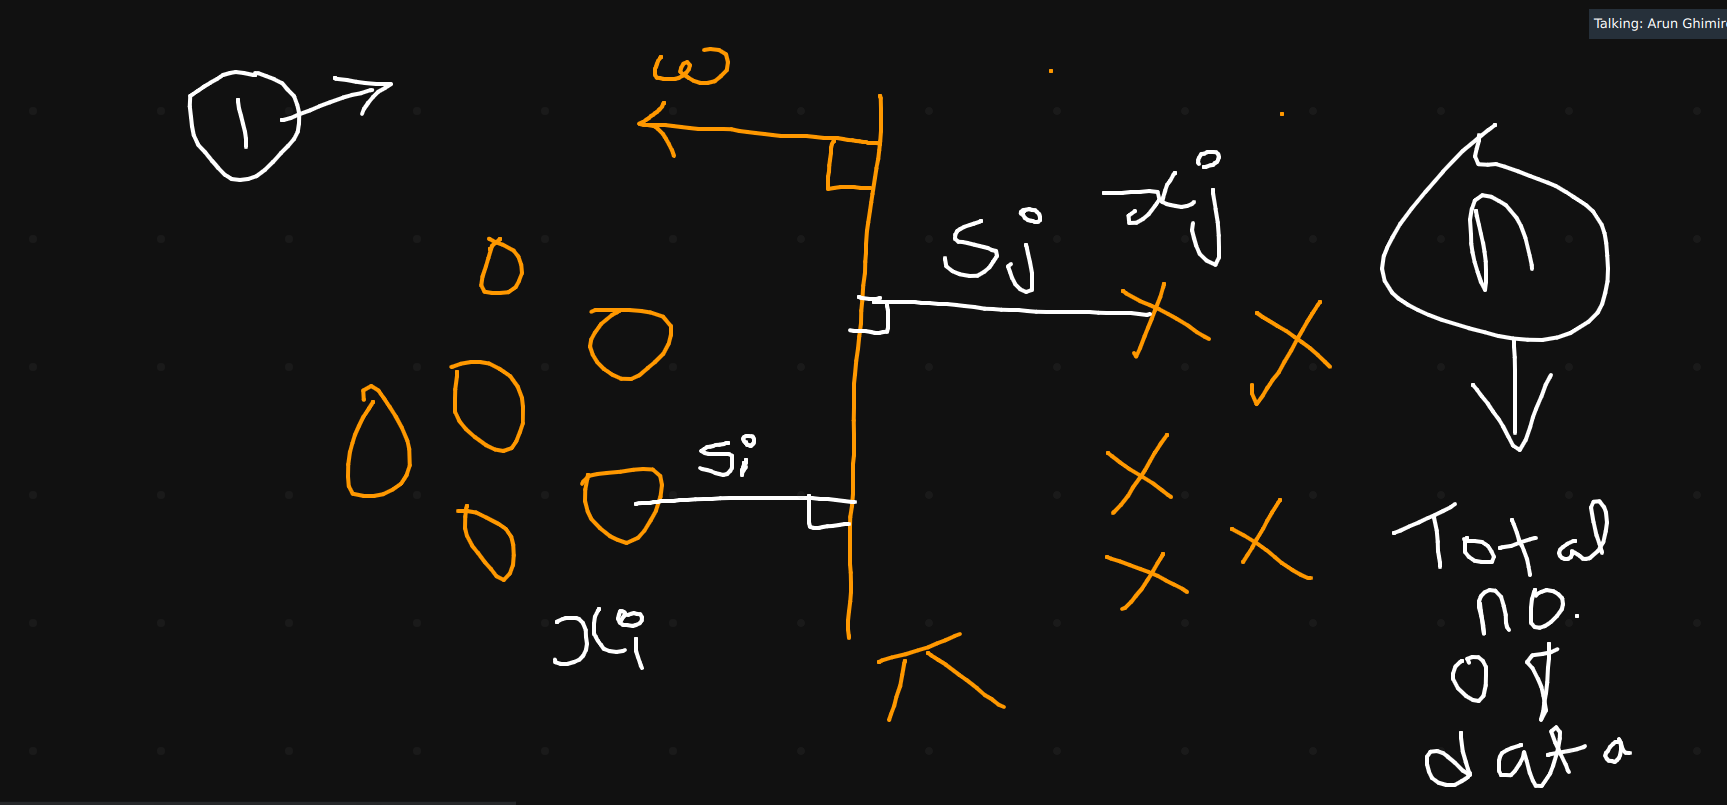 Talking: Arun Ghimir
1
ω
n
xj
Sj
Si
xi
π
Total
no.
of
data